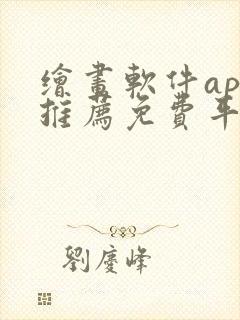 繪畫軟件ap
推薦免費平
劉慶峰